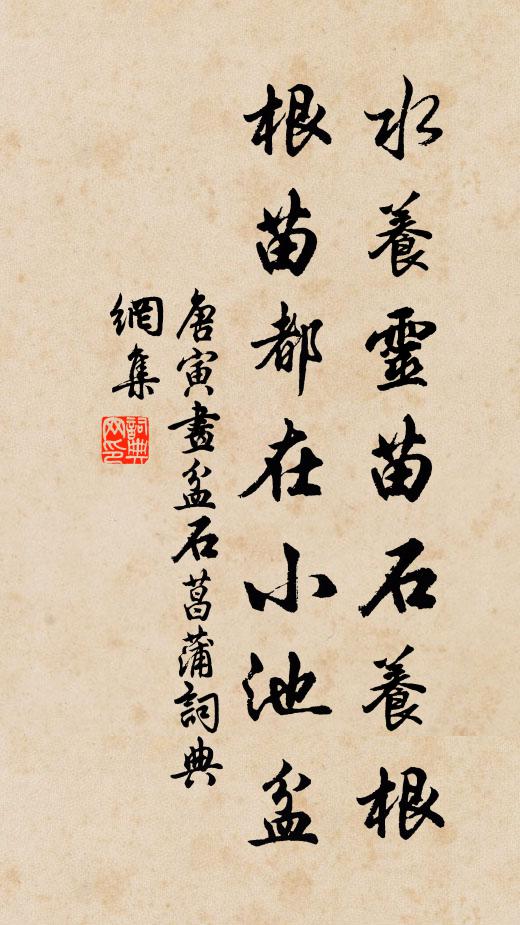 水養靈苗石養根
根苗都在小池盆
唐寅畫盆石菖蒲詞典
網集
詞典
网印